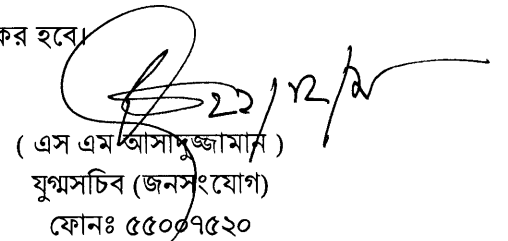 কর হবে।
২২/১২/
( এস এম আসাদুজ্জামান )
যুগ্মসচিব (জনসংযোগ)
ফোনঃ ৫৫০০৭৫২০